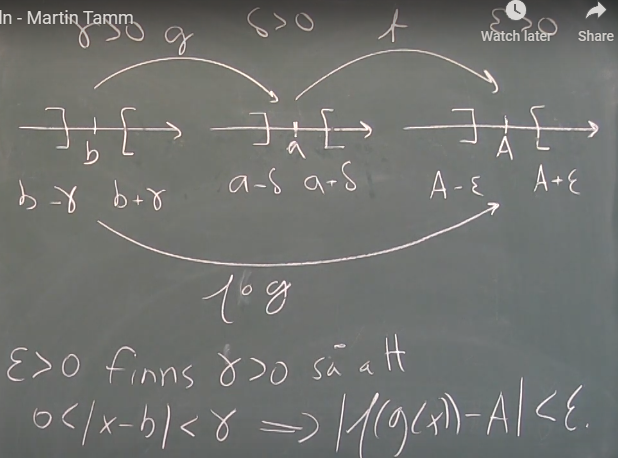 ln - Martin Tamm
Watch later
Share
γ>0 g δ>0 f ε>0
b a A
b-γ b+γ a-δ a+δ A-ε A+ε
f∘g
ε>0 finns γ>0 så att
0<|x-b|<γ ⟹ |f(g(x))-A|<ε.